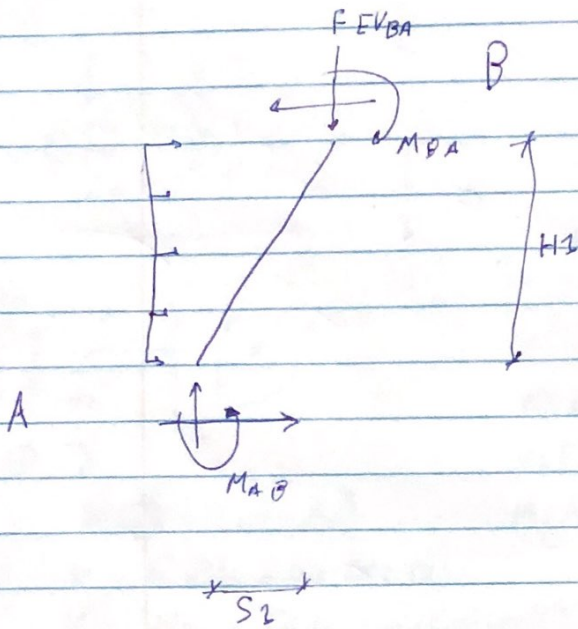 FEVBA
B
MBA
H1
A
MAB
S1